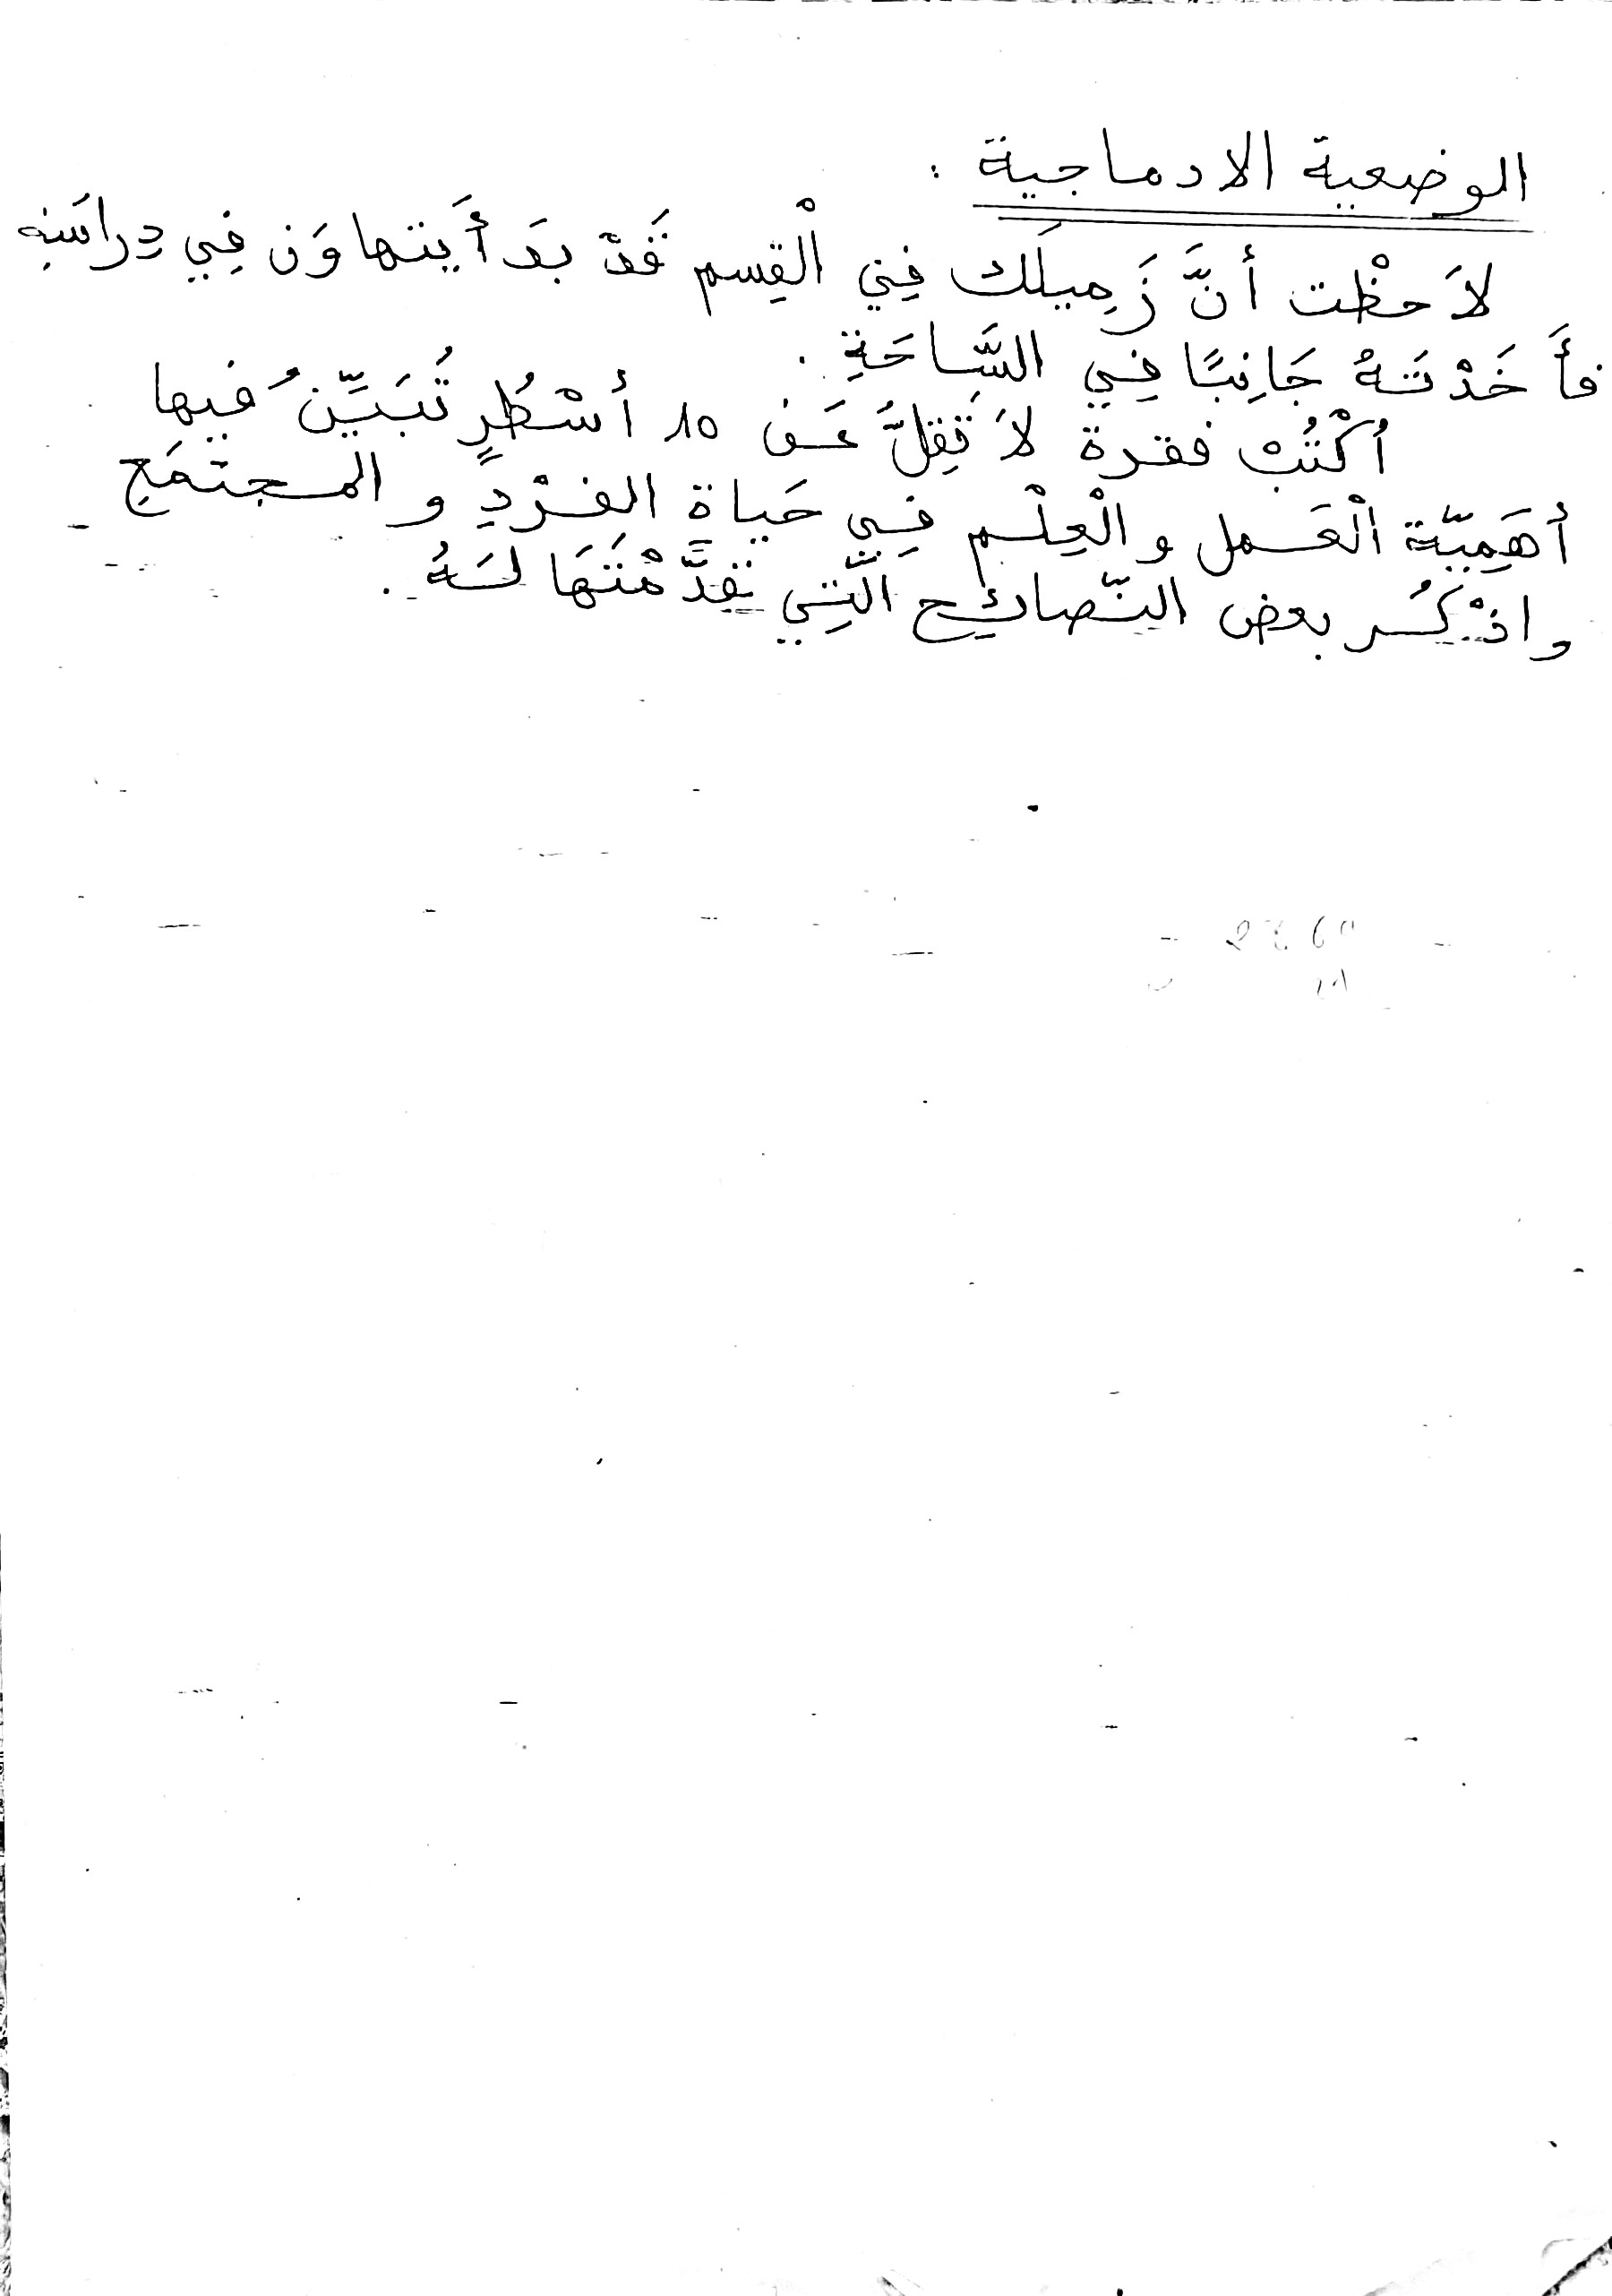 الوضعية الادماجية :
لاَحظْت أنَّ زَمِيلَك فِي الْقِسم قَدْ بدَأَ يَتهاوَن فِي دِراسَتِهِ
فأَخَدْتَهُ جَانِبًا فِي السَّاحَةِ .
اُكْتُبْ فقرة لاَ تَقِلُّ عَن 10 أسْطُرٍ تُبَيِّنُ فيها
أهَمِيّة الْعَمل والْعِلْم فِي حَياة الفرْدِ و المجتمَعِ
واذْكُر بعض النّصائِح الّتِي قدَّمْتَهَا لَهُ .